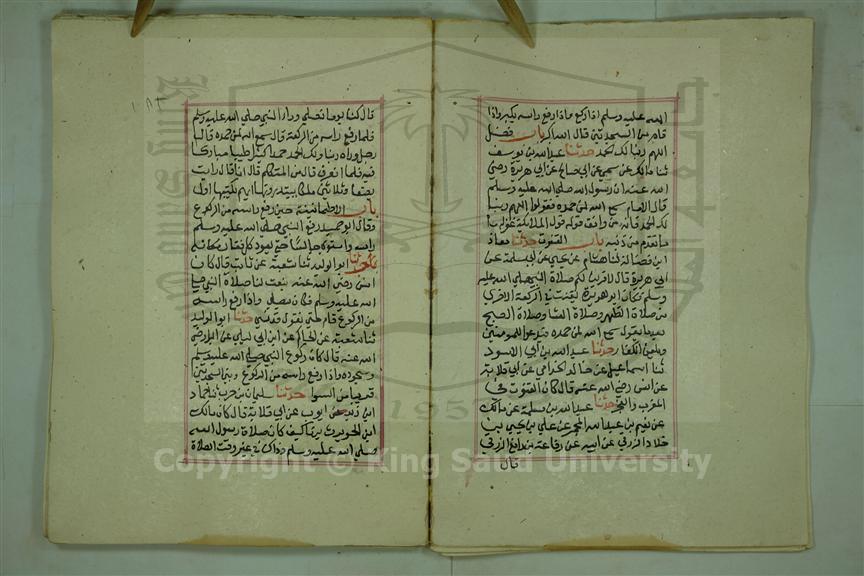 الله عليه وسلم اذا ركع واذا رفع راسه يكبر واذا
قام من السجدتين قال الله اكبر باب فضل
اللهم ربنا لك الحمد حدثنا عبد الله بن يوسف
ثنا مالك عن سمي عن ابي صالح عن ابي هريرة رضي
الله عنه ان رسول الله صلى الله عليه وسلم
قال اذا قال الامام سمع الله لمن حمده فقولوا اللهم ربنا
لك الحمد فانه من وافق قوله قول الملائكة غفر له
ما تقدم من ذنبه باب القنوت حدثنا معاذ
ابن فضالة ثنا هشام عن يحيى عن ابي سلمة عن
ابي هريرة قال لاقربن لكم صلاة النبي صلى الله عليه
وسلم فكان ابو هريرة يقنت في الركعة الاخرى
من صلاة الظهر وصلاة العشا وصلاة الصبح
بعد ما يقول سمع الله لمن حمده فيدعوا للمومنين
ويلعن الكفار حدثنا عبد الله بن ابي الاسود
ثنا اسماعيل عن خالد الحذاء عن ابي قلابة
عن انس رضي الله عنه قال كان القنوت في
المغرب والفجر حدثنا عبد الله بن مسلمة عن مالك
عن نعيم بن عبد الله المجمر عن علي بن يحيى بن
خلاد الزرقي عن ابيه عن رفاعة بن رافع الزرقي
قال
قال كنا يوما نصلي وراء النبي صلى الله عليه وسلم
فلما رفع راسه من الركعة قال سمع الله لمن حمده قال
رجل وراه ربنا ولك الحمد حمدا كثيرا طيبا مباركا
فيه فلما انصرف قال من المتكلم قال انا قال رايت
بضعة وثلاثين ملكا يبتدرونها ايهم يكتبها اول
باب الاطمانينة حين رفع راسه من الركوع
وقال ابو حميد رفع النبي صلى الله عليه وسلم
راسه واستوى جالسا حتى يعود كل فقار مكانه
حدثنا ابو الوليد ثنا شعبة عن ثابت قال كان
انس رضي الله عنه ينعت لنا صلاة النبي صلى
الله عليه وسلم فكان يصلي واذا رفع راسه
من الركوع قام حتى نقول قد نسي حدثنا ابو الوليد
ثنا شعبة عن الحكم عن ابن ابي ليلى عن البراء رضي
الله عنه قال كان ركوع النبي صلى الله عليه وسلم
وسجوده واذا رفع راسه من الركوع وبين السجدتين
قريبا من السوا حدثنا سليمان بن حرب ثنا حماد
ابن زيد عن ايوب عن ابي قلابة قال كان مالك
ابن الحويرث يرينا كيف كان صلاة رسول الله
صلى الله عليه وسلم وذاك في غير وقت الصلاة
1957
Copyright © King Saud University